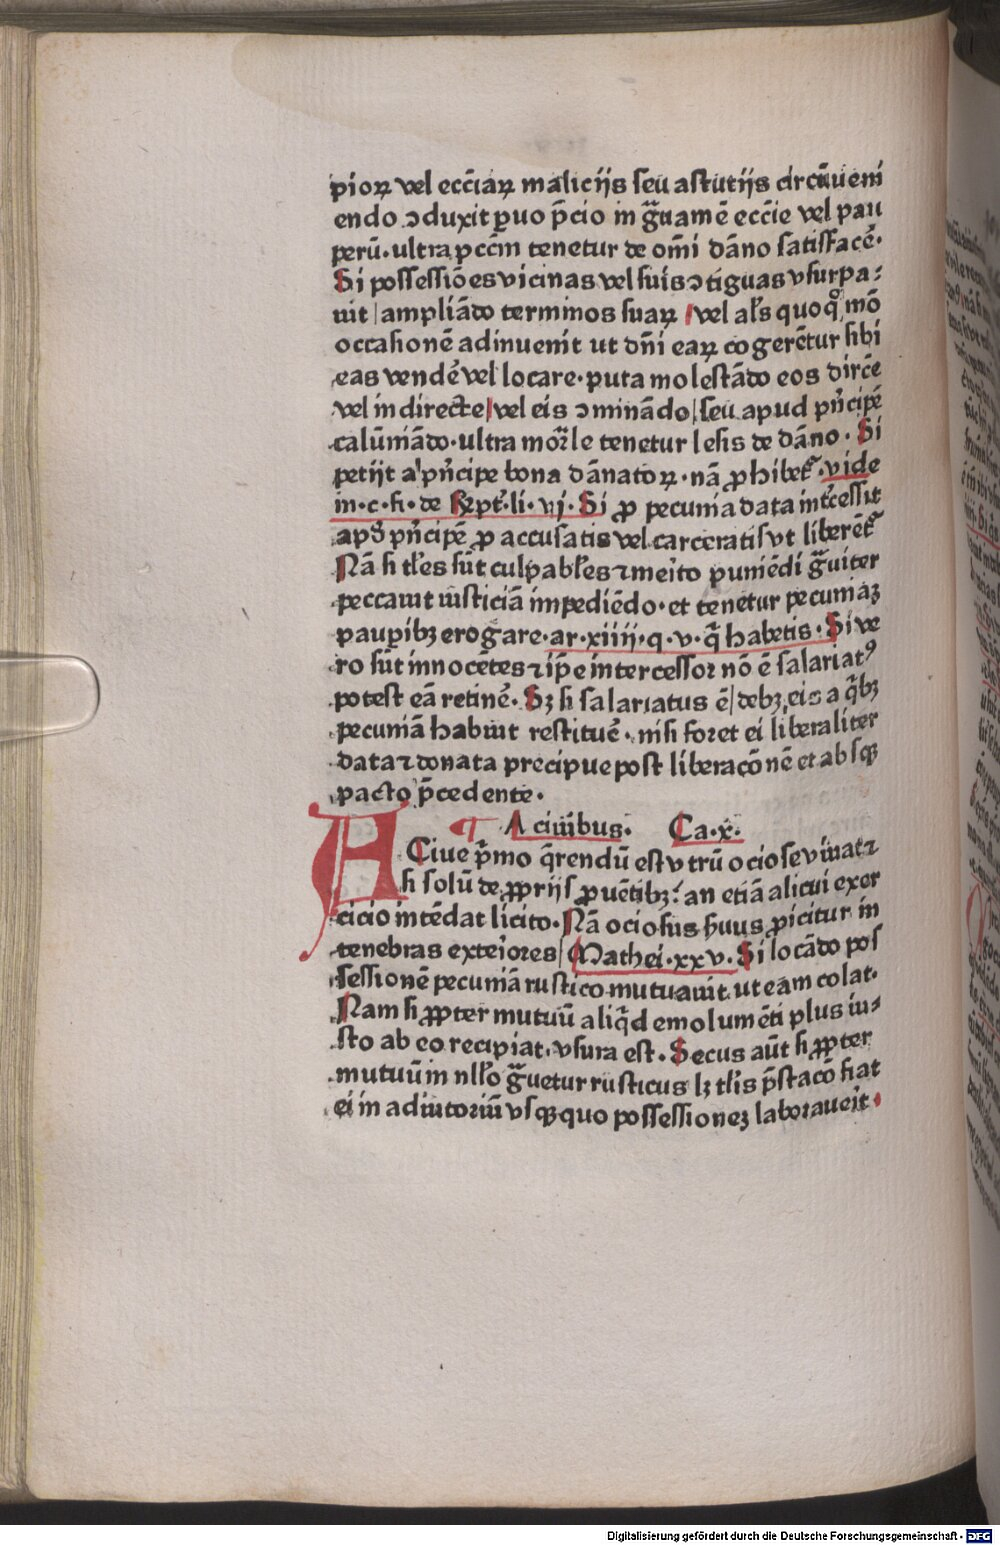 pioꝝ vel eccīaꝝ malicijs seu astutijs circūueni
endo ↄduxit ꝑuo p̄cio in gͣuamē eccīe vel pau
perū·ultra pccm̄ tenetur de om̄i dāno satisfacē·
Si possessiōes vicinas vel suis ↄtiguas vsurpa⸗
uit ampliādo terminos suaꝝ vel al's quoqͦ mō
occasionē adinuenit ut dn̄i eaꝝ cogerētur sibi
eas vendē vel locare·puta molestādo eos dirc̄e
vel indirecte vel eis ↄminādo seu apud pn̄cipē
calūniādo·ultra mor̄le tenetur lesis de dāno· Si
petijt a pn̄cipe bona dānatoꝝ·nā ꝓhibet᷑·vide
in·c·si·de ꝶept·li·vj·Si ꝓ pecunia data int̄cessit
apđ pn̄cipē ꝓ accusatis vel carceratis vt liberēt᷑
Nā si tl'es sūt culpabl'es ⁊ meīto puniēdi gͣuiter
peccauit iusticiā impediēdo·et tenetur pecuniaꝫ
pauꝑibꝫ erogare·ar·xiiij·q·v·qͣ habetis·Si ve
ro sūt innocētes ⁊ ip̄e intercessor nō ē salariatꝰ
potest eā retinē·Sꝫ si salariatus ē debꝫ eis a qͥbꝫ
pecuniā habuit restituē·nisi foret ei liberaliter
data ⁊ donata precipue post liberacōnē et absqꝫ
pacto p̄cedente·
¶ A ciuibus· Ca·x·
A Ciue p̄mo q̄rendū est vtrū ociose viuat ⁊
si solū de ꝓprijs ꝓuētibꝫ? an etiā alicui exer
cicio intēdat licito·Nā ociosus huus ꝓicitur in
tenebras exteīores Mathei·xxv·Si locādo pos
sessionē pecuniā rustico mutuauit ut eam colat·
Nam si ꝓpter mutuū aliqͥd emolumēti plus iu⸗
sto ab eo recipiat·vsura est·Secus aūt si ꝓpter
mutuū in nll'o gͣuetur rusticus lꝫ tl'is p̄stacō fiat
ei in adiutoriū vsqꝫ quo possessionez laboraueīt·
Digitalisierung gefördert durch die Deutsche Forschungsgemeinschaft - DFG